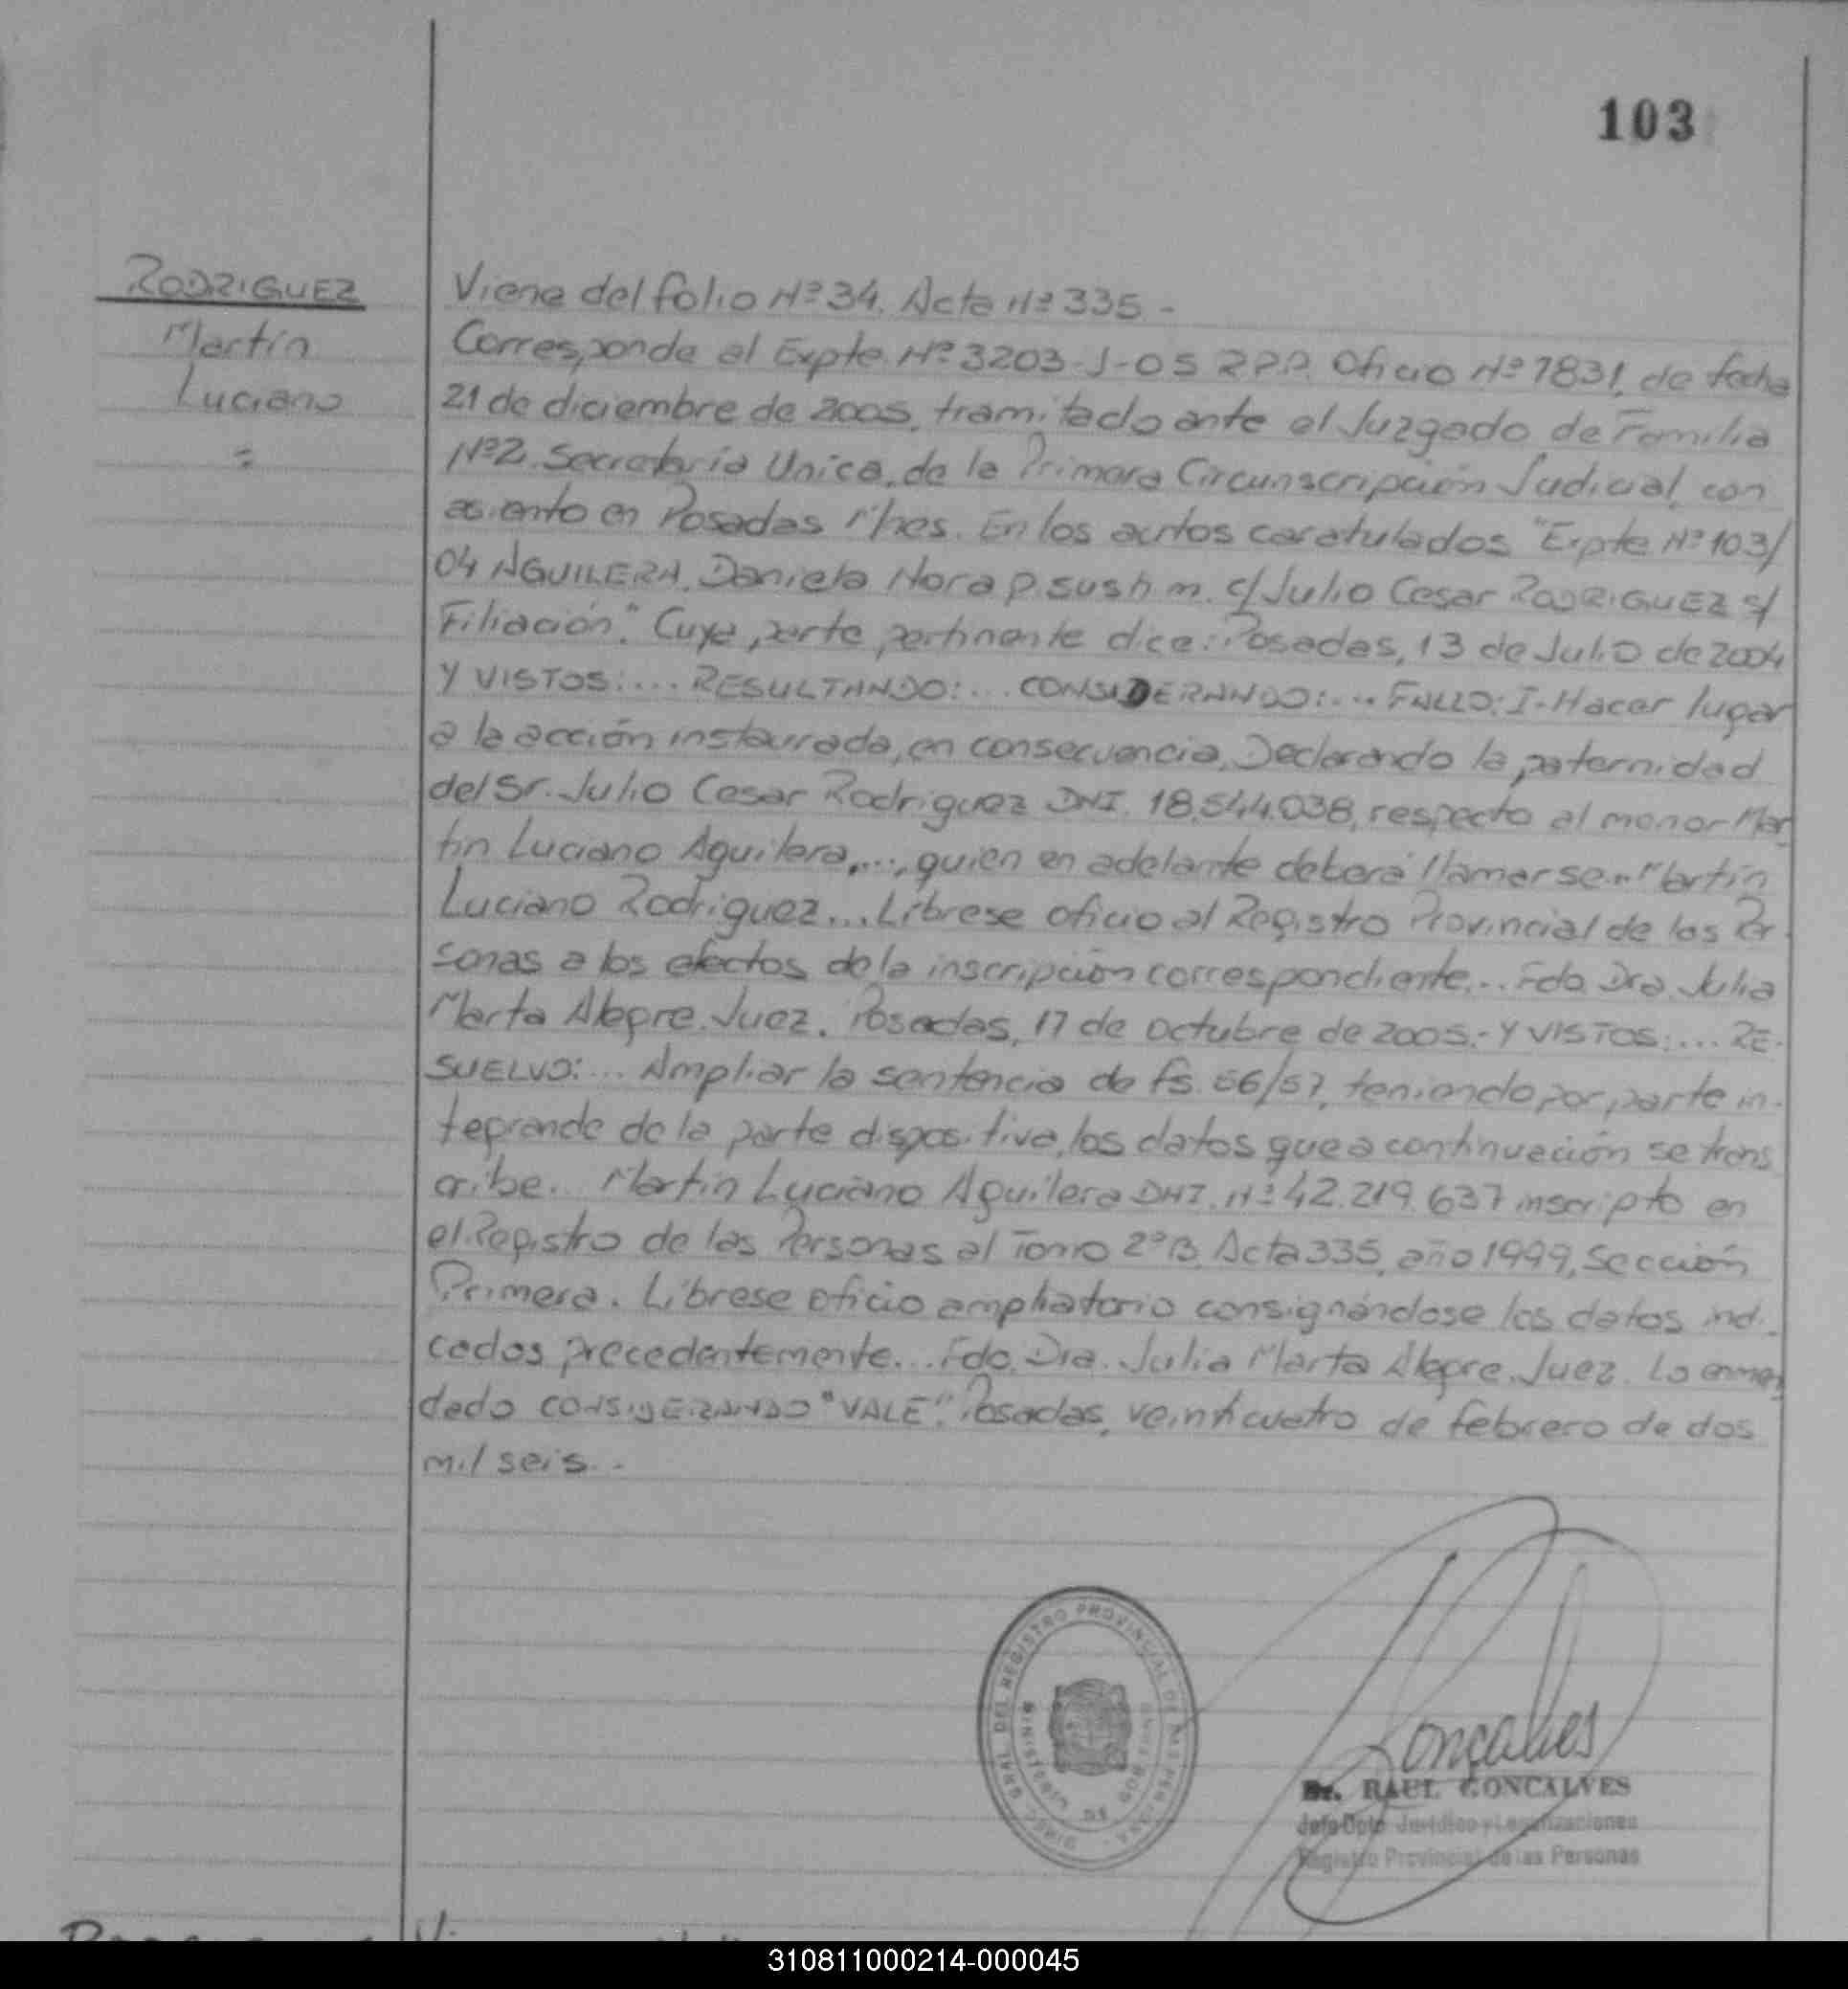 103
RODRIGUEZ
Martín
Luciano
=
Viene del folio Nº 34. Acta Nº 335.-
Corresponde al Expte. Nº 3203-J-05 RPP. Oficio Nº 7831, de fecha
21 de diciembre de 2005, tramitado ante el Juzgado de Familia
Nº2. Secretaría Unica, de la Primera Circunscripción Judicial, con
asiento en Posadas Mnes. En los autos caratulados "Expte Nº 103/
04 AGUILERA, Daniela Nora p. sus h. m. c/ Julio Cesar RODRIGUEZ s/
Filiación." Cuya parte pertinente dice: Posadas, 13 de Julio de 2004
Y VISTOS:... RESULTANDO:... CONSIDERANDO:... FALLO: I-Hacer lugar
a la acción instaurada, en consecuencia, Declarando la paternidad
del Sr. Julio Cesar Rodriguez DNI. 18.544.038, respecto al menor Mar
tín Luciano Aguilera,..., quien en adelante deberá llamarse... Martín
Luciano Rodriguez... Líbrese oficio al Registro Provincial de las Per
sonas a los efectos de la inscripción correspondiente... Fdo. Dra. Julia
Marta Alegre. Juez. Posadas, 17 de octubre de 2005.- Y VISTOS:... RE-
SUELVO:... Ampliar la sentencia de fs. 56/57, teniendo por parte in-
tegrande de la parte dispositiva, los datos que a continuación se trans
cribe. Martín Luciano Aguilera DNI. Nº 42.219.637 inscripto en
el Registro de las Personas al Tomo 2º B, Acta 335, año 1999, Sección
Primera. Líbrese oficio ampliatorio consignándose los datos indi-
cados precedentemente... Fdo. Dra. Julia Marta Alegre. Juez. Lo enmen
dado CONSIDERANDO "VALE". Posadas, veinticuatro de febrero de dos
mil seis.-
DIREC. GRAL. DEL REGISTRO PROVINCIAL DE LAS PERSONAS
MINISTERIO DE GOBIERNO
Goncalves
Dr. RAUL GONCALVES
Jefe Dpto Jurídico y Legalizaciones
Registro Provincial de las Personas
310811000214-000045